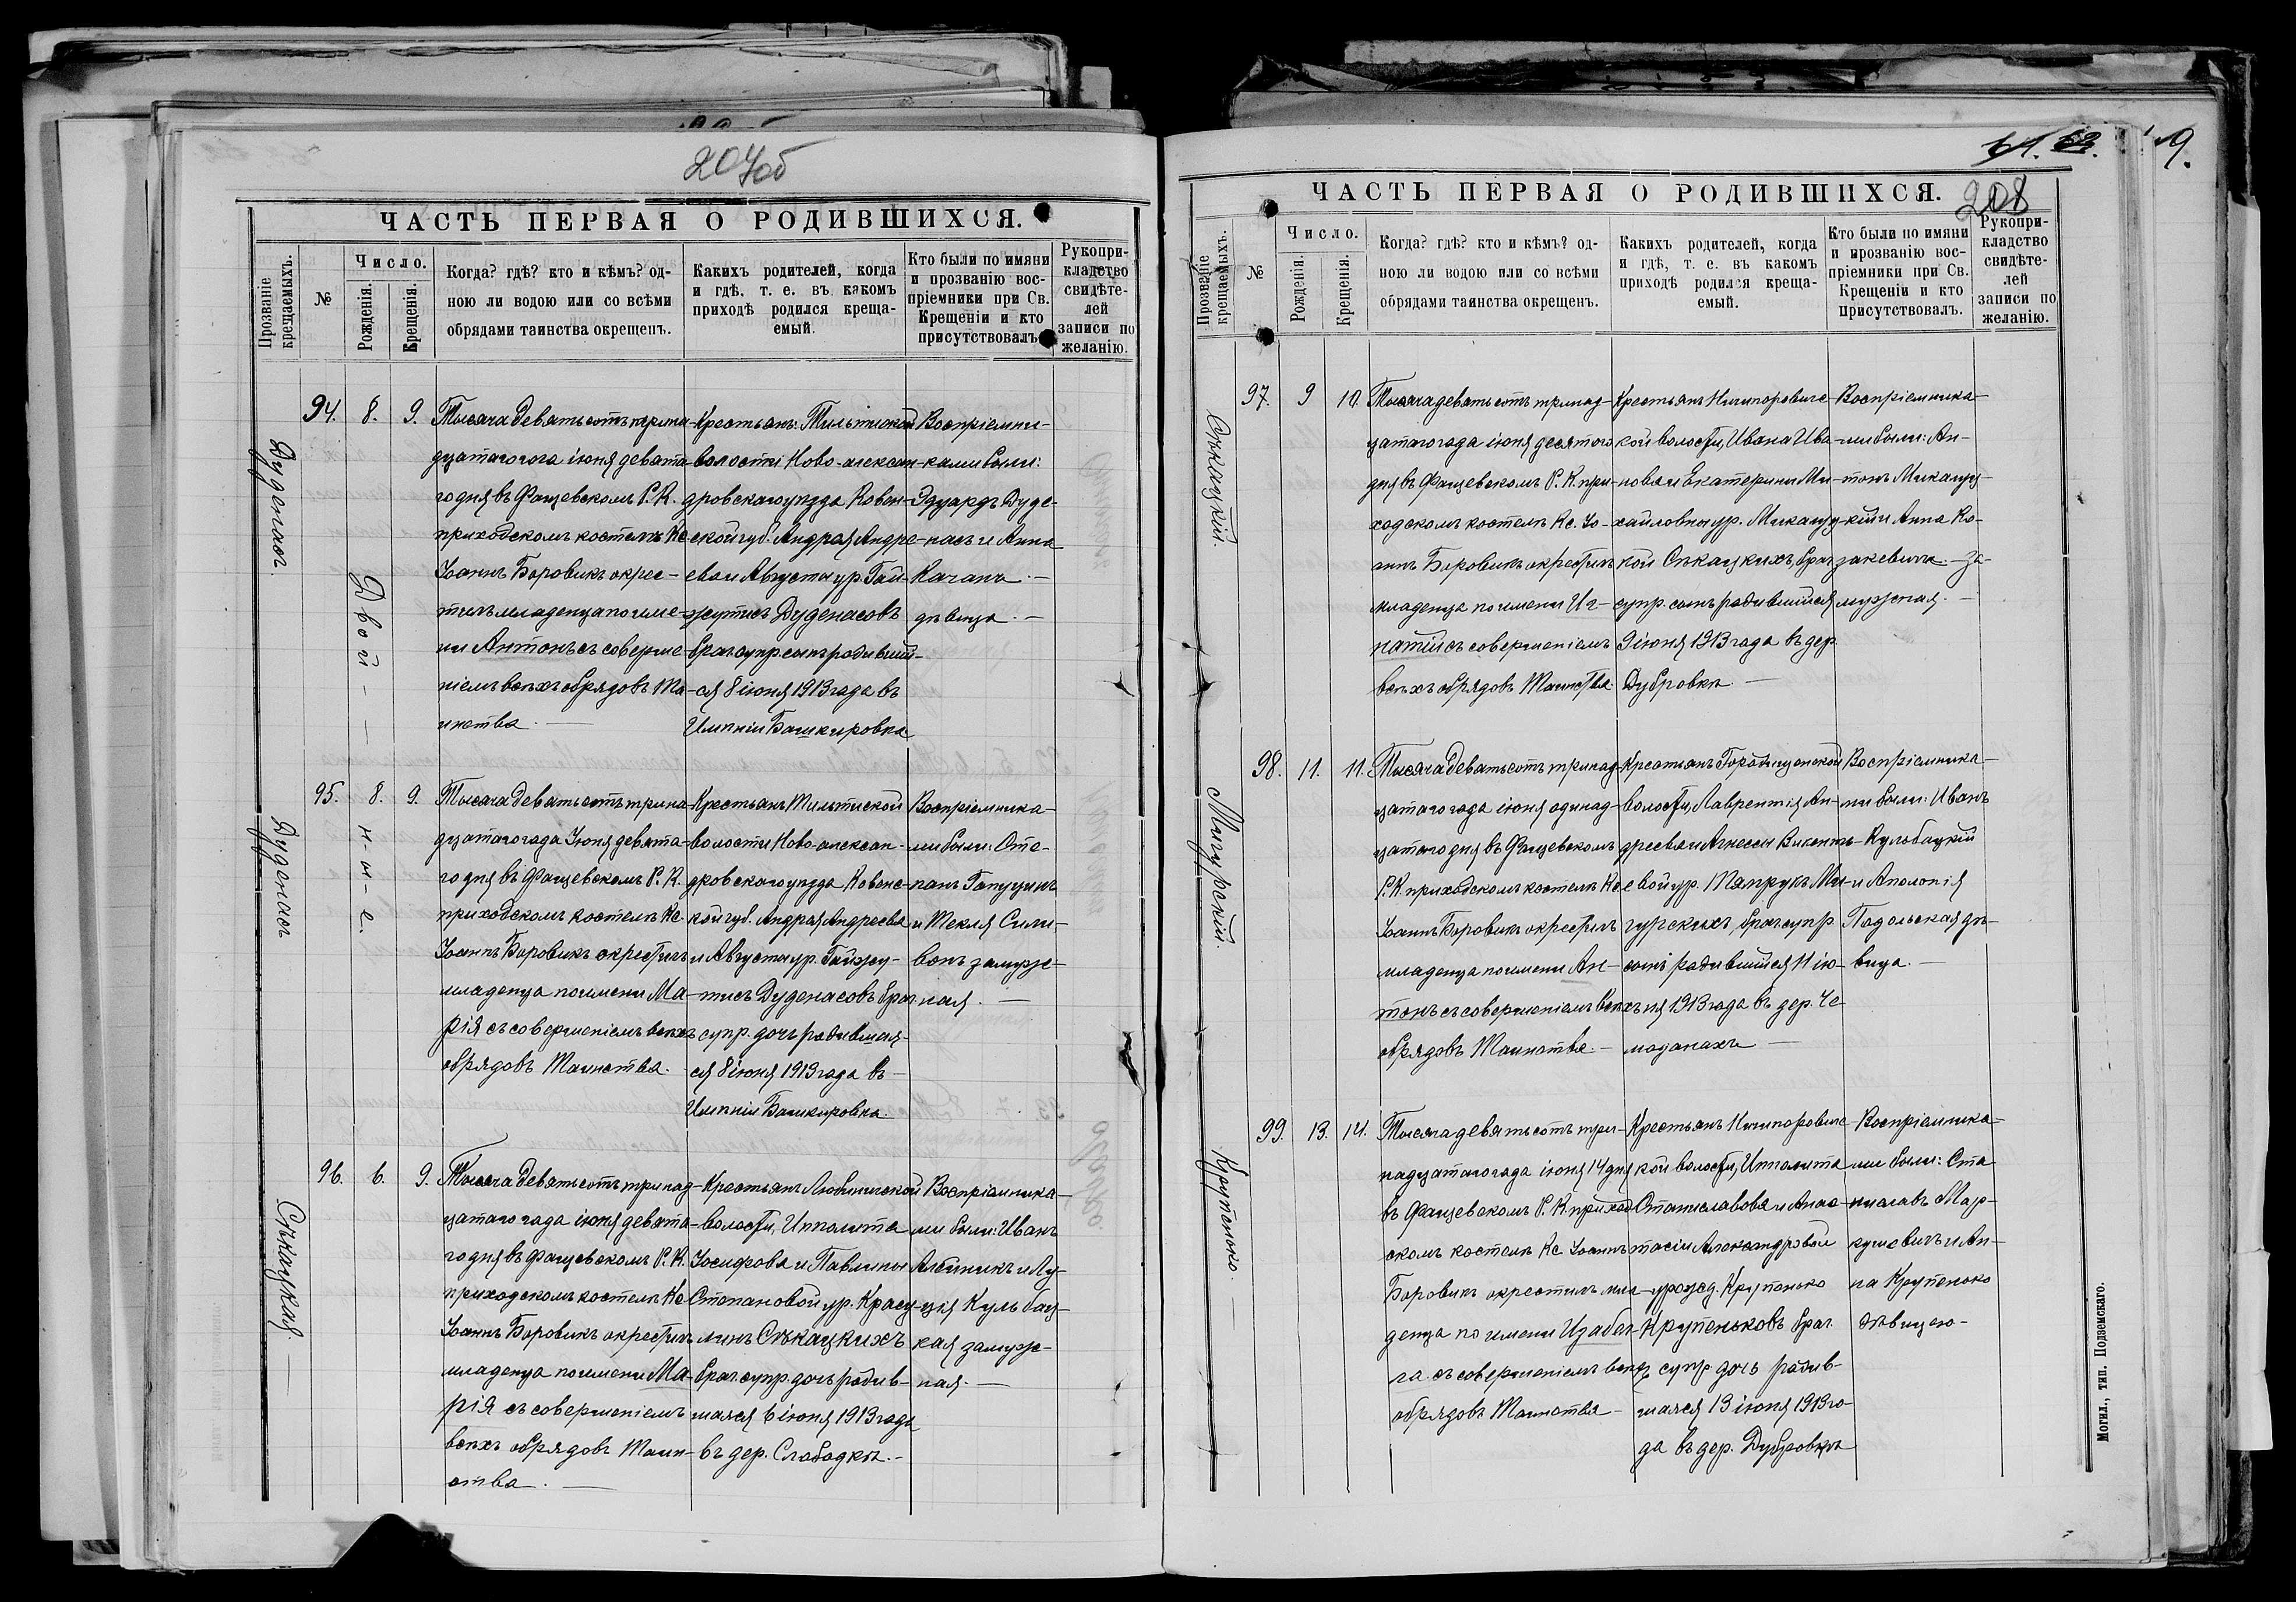 207об
ЧАСТЬ ПЕРВАЯ О РОДИВШИХСЯ.
Прозваніе крещаемыхъ.
№
Число.
Рожденія.
Крещенія.
Когда? гдѣ? кто и кѣмъ? од-
ною ли водою или со всѣми
обрядами таинства окрещенъ.
Какихъ родителей, когда
и гдѣ, т. е. въ какомъ
приходѣ родился креща-
емый.
Кто были по имяни
и прозванію вос-
пріемники при Св.
Крещеніи и кто
присутствовалъ
Рукопри-
кладство
свидѣте-
лей
записи по
желанію.
Дуденасъ.
94. 8. 9.
Двой-
Тысяча девятьсотъ трина-
дцатаго года іюня девята-
го дня въ Фащевскомъ Р. К.
приходскомъ костелѣ Кс
Іоаннъ Боровикъ окрес-
тилъ младенца по име-
ни Антонъ съ соверше-
ніемъ всѣхъ обрядовъ Та-
инства.
Крестьянъ: Тильтиской
волости Ново-алексан-
дровскаго уѣзда Ковен-
ской губ. Андрея Андре-
ева и Августы ур. Гай-
жутисъ Дуденасовъ
брач. супр. сынъ родивший-
ся 8 іюня 1913 года въ
Имѣніи Башкировка
Воспріемни-
ками были:
Эдуардъ Дуде-
насъ и Анна
Качанъ.
дѣвица.
Дуденасъ
95. 8. 9.
ни-е.
Тысяча девятьсотъ трина-
дцатаго года Іюня девята-
го дня въ Фащевскомъ Р. К.
приходскомъ костелѣ Кс.
Іоаннъ Боровикъ окрестилъ
младенца по имени Ма-
рія съ совершеніемъ всѣхъ
обрядовъ Таинства.
Крестьянъ Тильтиской
волости Ново-алексан-
дровскаго уѣзда Ковенс-
кой губ. Андрея Андреева
и Августы ур. Гайжу-
тисъ Дуденасовъ брач
супр. дочь родившая-
ся 8 іюня 1913 года въ
Имѣніи Башкировка.
Воспріемника-
ми были: Сте-
панъ
и Текля Сили-
вонъ замуж-
ная.
Сѣкацкая.
96. 6. 9.
Тысяча девятьсотъ тринад-
цатаго года іюня девята-
го дня въ Фащевскомъ Р. К.
приходскомъ костелѣ Кс
Іоаннъ Боровикъ окрестилъ
младенца по имени Ма-
рія съ совершеніемъ
всѣхъ обрядовъ Таин-
ства.
Крестьянъ Любиничской
волости, Ипполита
Іосифова и Павлины
Степановой ур. Красу-
линъ Сѣкацкихъ
брач. супр. дочь родив-
шаяся 6 іюня 1913 года
въ дер. Слободкѣ.
Воспріемника-
ми были: Иванъ
Алейникъ и Лу-
ція Кульбац-
кая замуж-
ная.
61. 63. 19.
208
ЧАСТЬ ПЕРВАЯ О РОДИВШИХСЯ.
Прозваніе крещаемыхъ.
№
Число.
Рожденія.
Крещенія.
Когда? гдѣ? кто и кѣмъ? од-
ною ли водою или со всѣми
обрядами таинства окрещенъ.
Какихъ родителей, когда
и гдѣ, т. е. въ какомъ
приходѣ родился креща-
емый.
Кто были по имяни
и прозванію вос-
пріемники при Св.
Крещеніи и кто
присутствовалъ.
Рукопри-
кладство
свидѣте-
лей
записи по
желанію.
Сѣкацкій.
97. 9 10.
Тысяча девятьсотъ тринад-
цатаго года іюня десятого
дня въ Фащевскомъ Р. К. при-
ходскомъ костелѣ Кс. Іо-
аннъ Боровикъ окрестилъ
младенца по имени Иг-
натій съ совершеніемъ
всѣхъ обрядовъ Таинства.
Крестьянъ Ничипоровичс-
кой волости, Ивана Ива-
нова и Екатерины Ми-
хайловны ур. Микашуц-
кой Сѣкацкихъ, брач
супр. сынъ родившийся
9 іюня 1913 года въ дер
Дубровкѣ
Воспріемника-
ми были: Ан-
тонъ Микашуц-
кій и Анна Ко-
закевичъ. - за-
мужная.
Мигурскій.
98. 11. 11.
Тысяча девятьсотъ тринад-
цатаго года іюня одинад-
цатаго дня въ Фащевскомъ
Р. К. приходскомъ костелѣ Кс
Іоаннъ Боровикъ окрестилъ
младенца по имени Ан-
тонъ съ совершеніемъ всѣхъ
обрядовъ Таинства.
Крестьянъ Городищенской
волости, Лаврентія Ан-
дреева и Агнессы Викент-
евой ур. Тяпрукъ Ми-
гурскихъ, брач. супр.
сынъ родившийся 11 ію-
ня 1913 года въ дер. Че-
моданахъ
Воспріемника-
ми были: Иванъ
Кульбацкій
и Аполонія
Подольская дѣ-
вица.
Крупенько.
99. 13. 14.
Тысяча девятьсотъ три-
надцатаго года іюня 14 дня
въ Фащевскомъ Р. К. приход
скомъ костелѣ Кс Іоаннъ
Боровикъ окрестилъ мла-
денца по имени Изабел-
ла съ совершеніемъ всѣхъ
обрядовъ Таинства
Крестьянъ Ничипоровичс-
кой волости, Ипполита
Станиславова и Анас-
тасіи Александровой
урожд. Крупенько
Крупеньковъ брач.
супр. дочь родив-
шаяся 13 іюня 1913 го-
да въ дер. Дубровкѣ
Воспріемника-
ми были: Ста
ниславъ Мар-
кушевичъ и Ан-
на Крупенько
дѣвицею-
Могил., тип. Подземскаго.